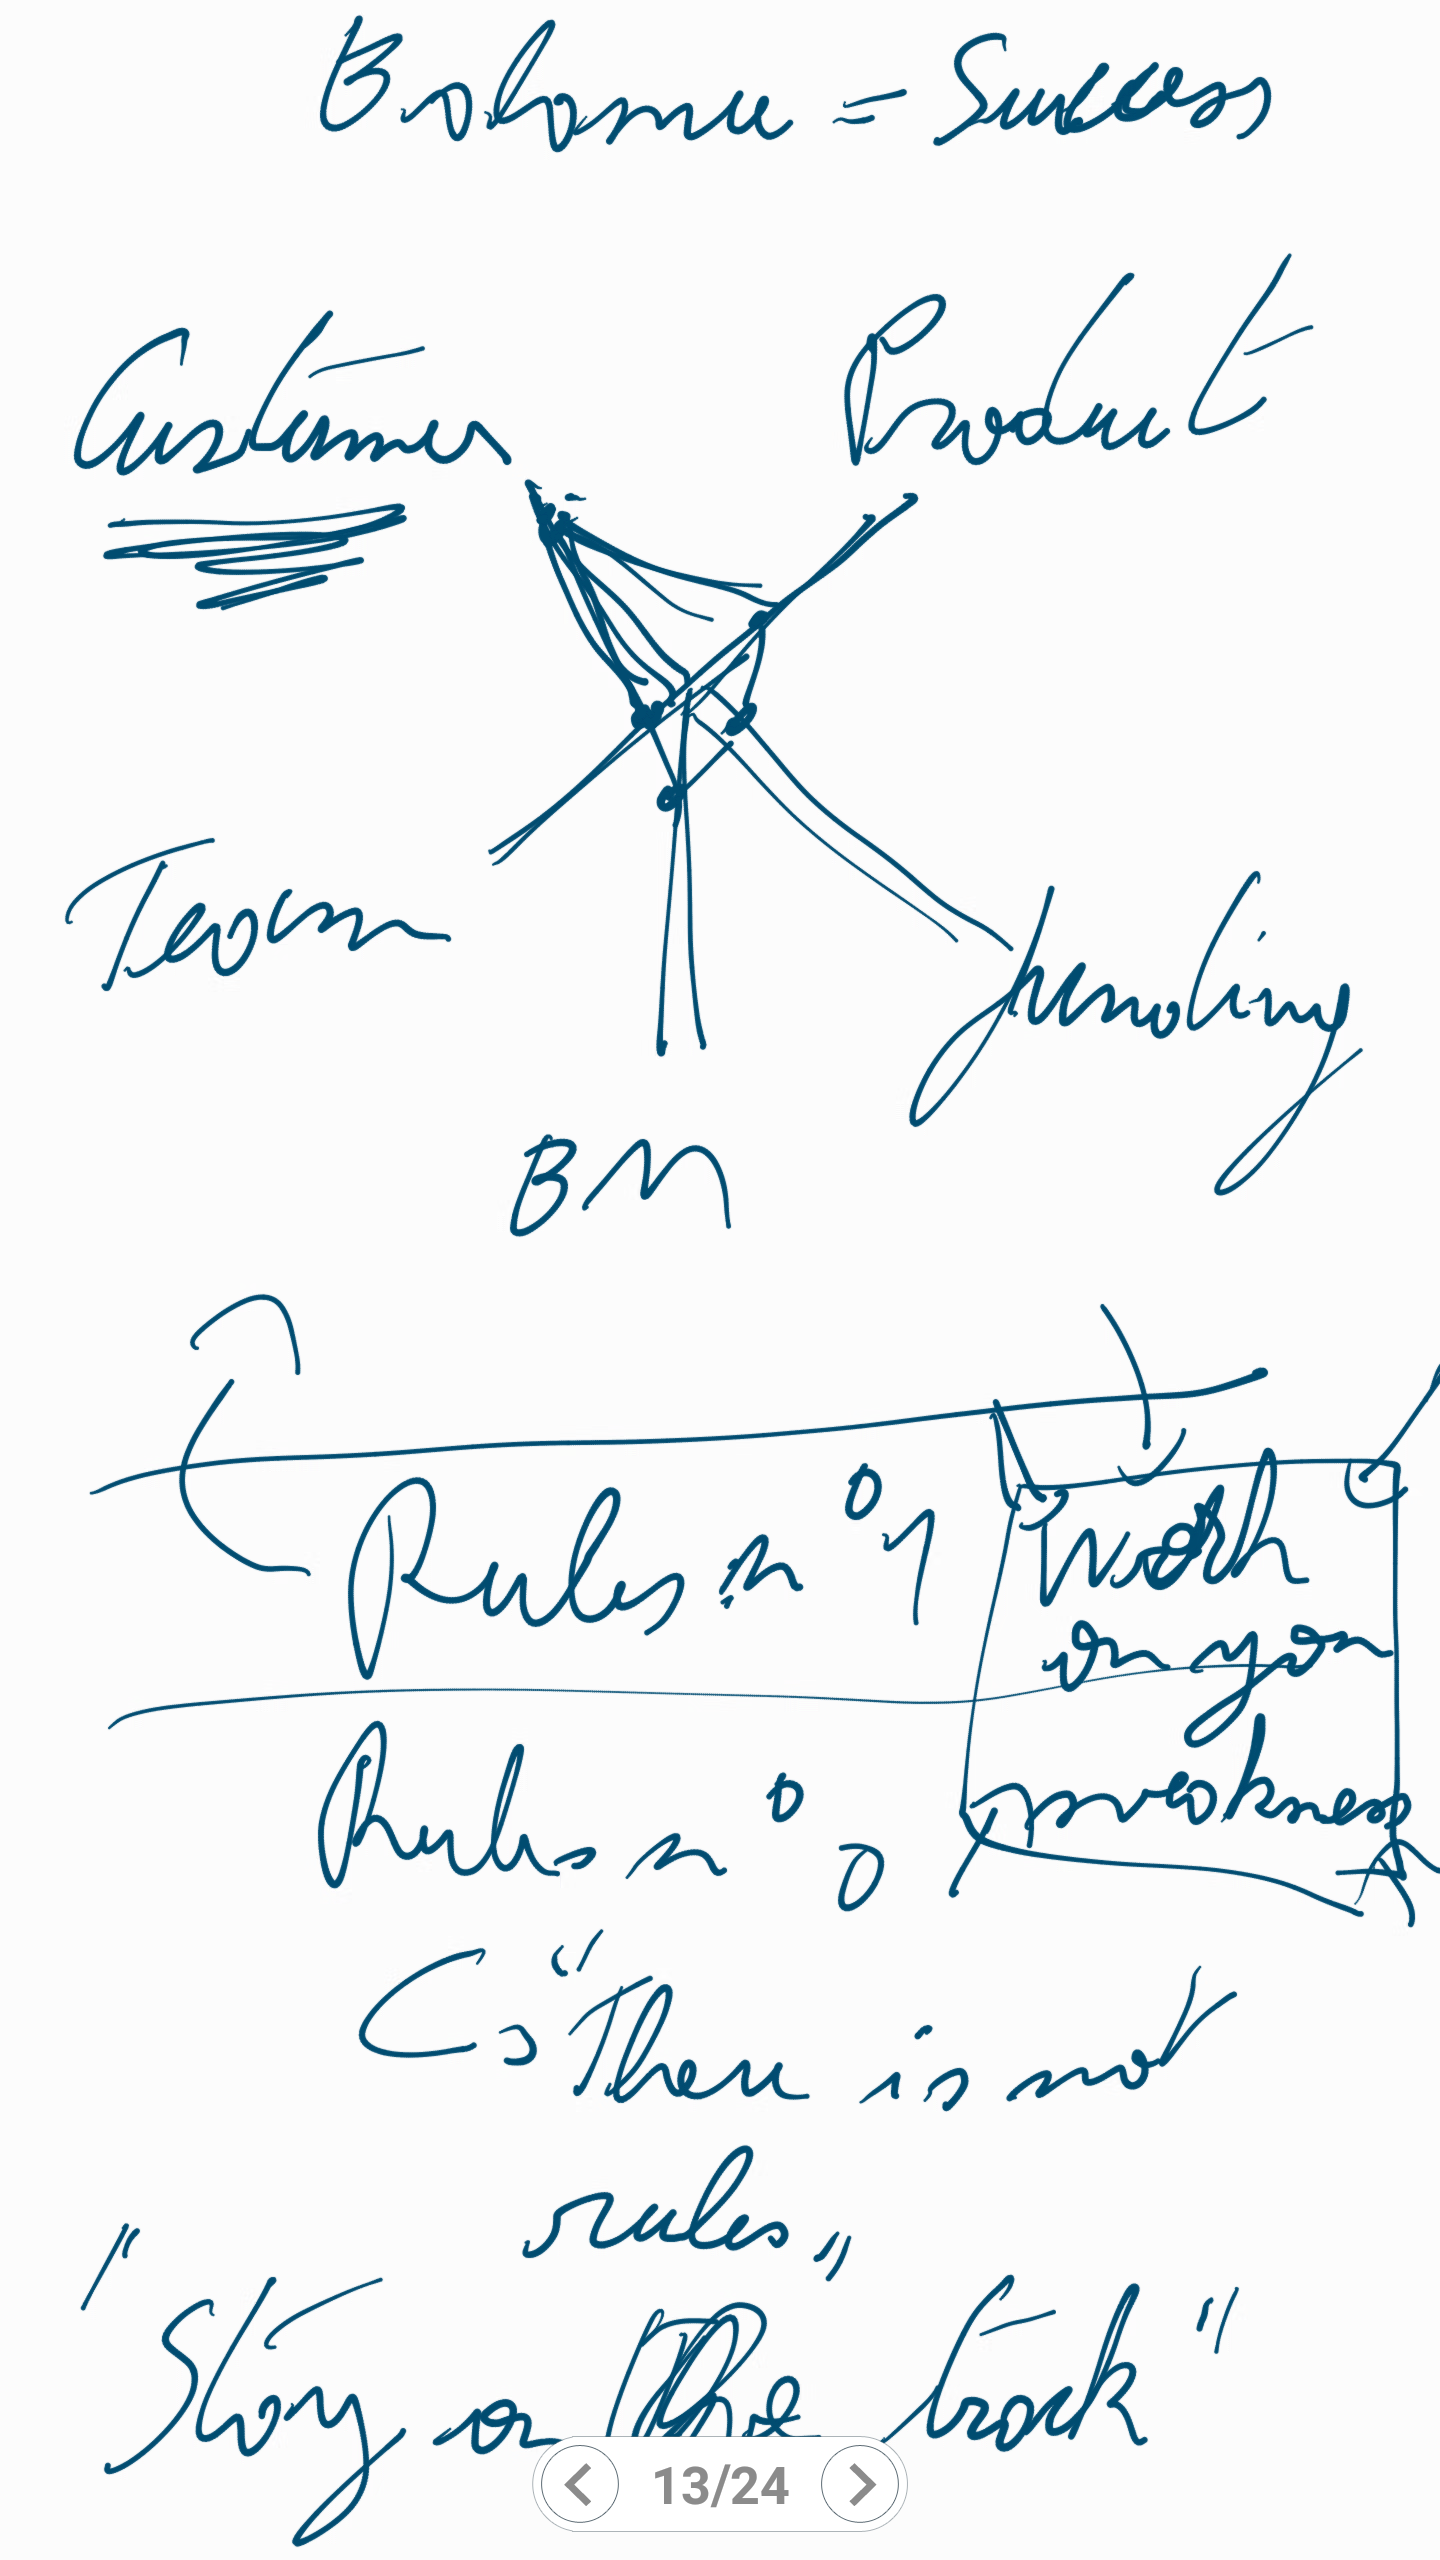 Balance = Success
Customer
Product
Team
funding
BM
Rules n° 1
Work
on you
weakness
Rules n° 0
"There is not
rules"
"Stay on the track"
13/24